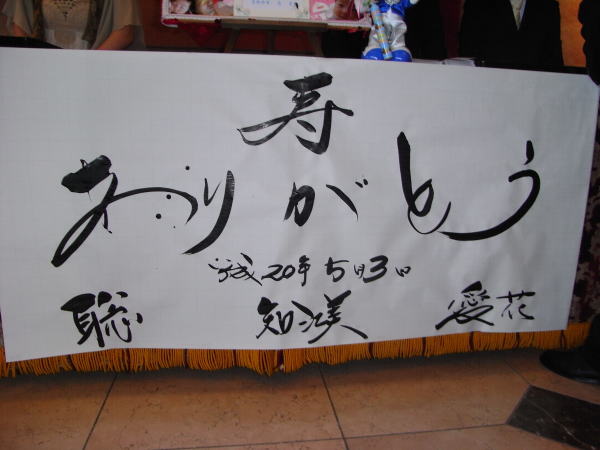 寿
ありがとう
平成20年5月3日
聡 知渼 愛花